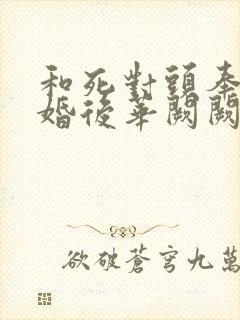 和死對頭奉
婚後華闕闕
欲破蒼穹九萬